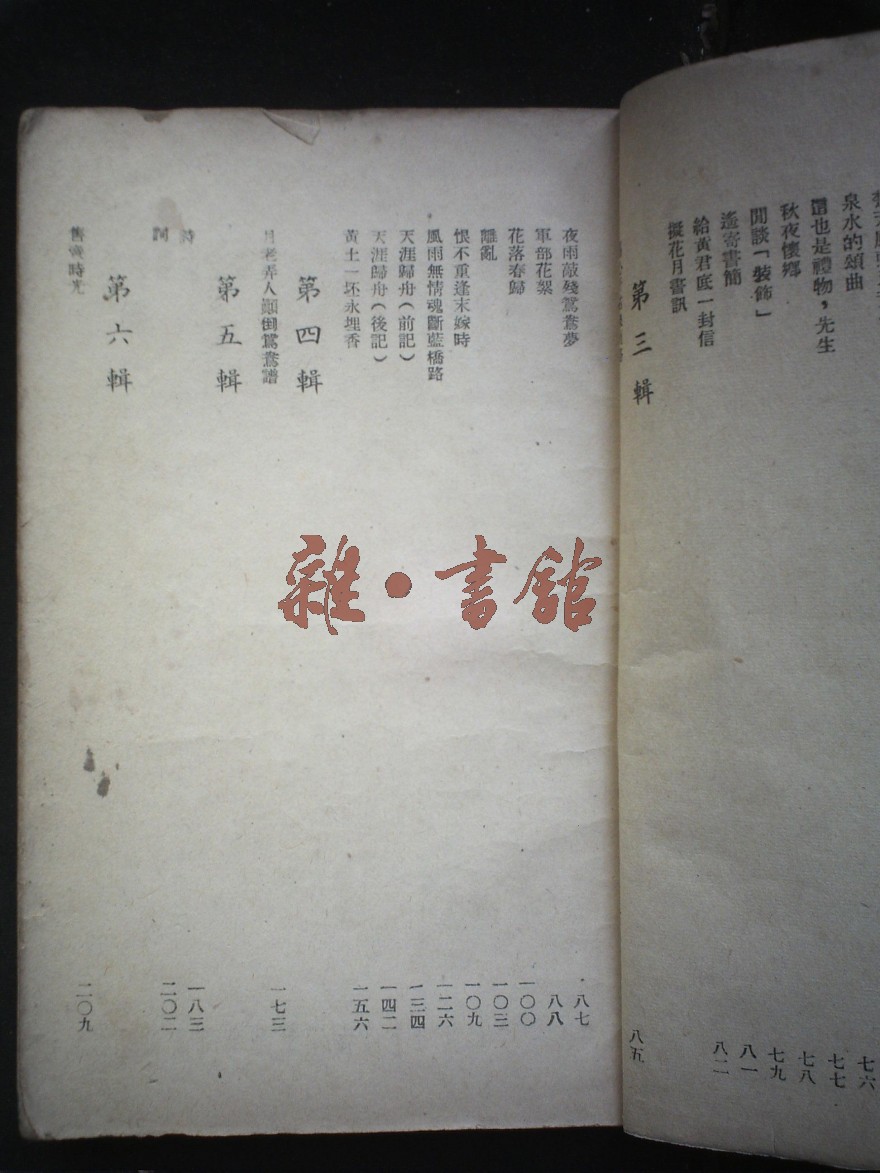 泉水的頌曲
這也是禮物，先生
秋夜懷鄉
閒談「裝飾」
遙寄書簡
給黃君底一封信
擬花月書訊
第三輯
七六
七七
七八
七九
八一
八二
八五
夜雨敲殘鴛鴦夢
軍部花絮
花落春歸
離亂
恨不重逢未嫁時
風雨無情魂斷藍橋路
天涯歸舟（前記）
天涯歸舟（後記）
黃土一坯永埋香
第四輯
月老弄人顚倒鴛鴦譜
第五輯
詩
詞
第六輯
舊夢時光
八七
八八
一〇〇
一〇三
一〇九
一二六
一三四
一四二
一五六
一七三
一八三
二〇二
二〇九
雜·書館